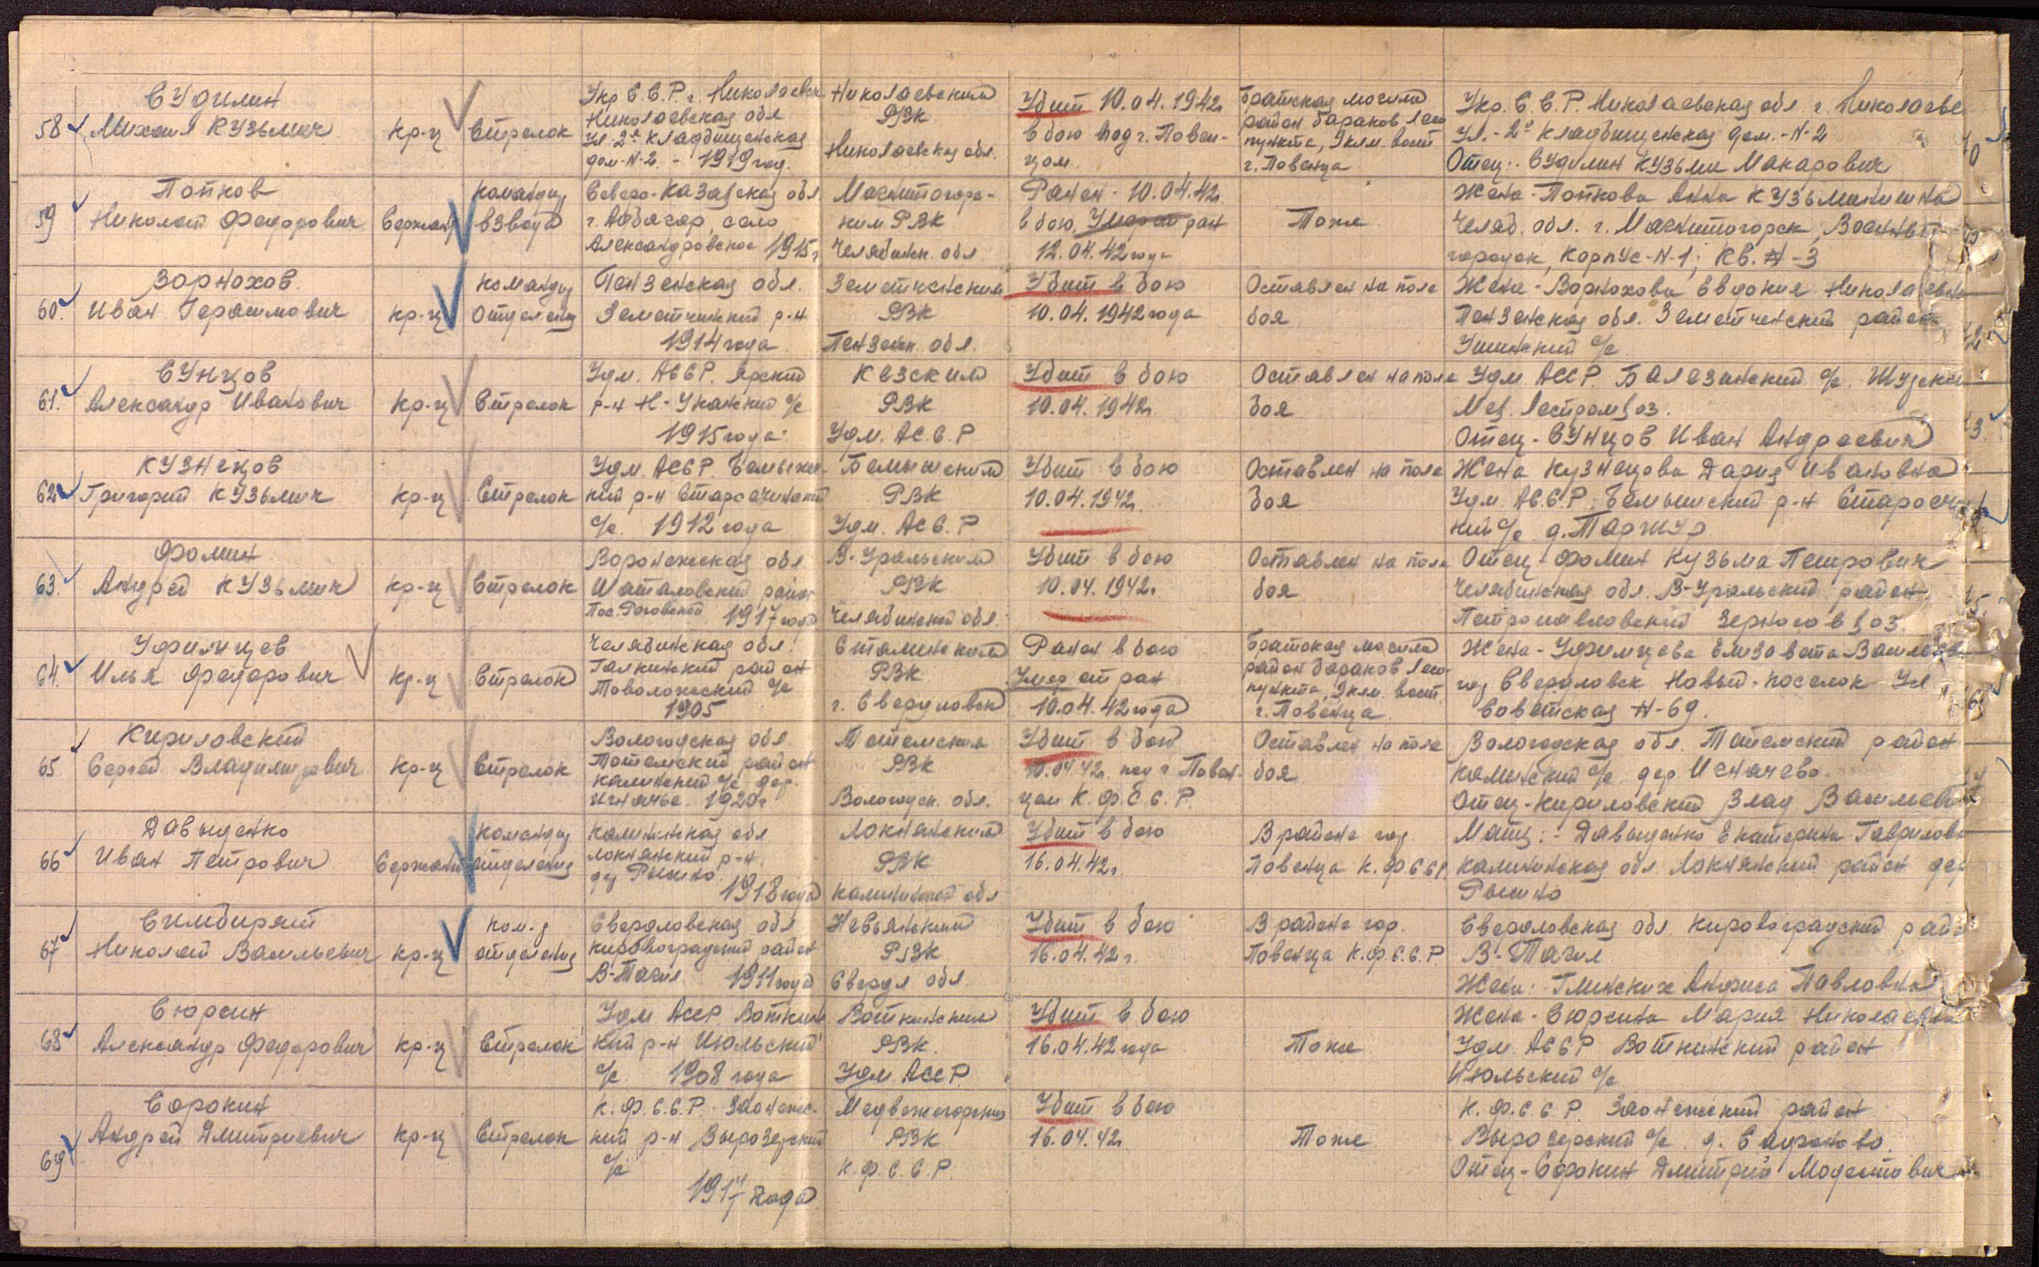 58. Судилин
Михаил Кузьмич
кр-ц
Стрелок
Укр С.С.Р. г. Николаевск
Николаевская обл
Ул. 2я Кладбищенская
дом-N-2. - 1919 год.
Николаевским
РВК
Николаевская обл.
Убит 10.04.1942г
в бою под г. Повен-
цом.
Братская могила
район бараков Лесо
пункта, 9 км. вост
г. Повенца
Укр. С.С.Р. Николаевская обл. г. Николаевс
Ул. - 2я Кладбищенская дом. - N-2
Отец.. Судилин Кузьма Макарович
59 Попков
Николай Федорович
Сержант
командир
взвода
Северо-Казахская обл
г. Атбасар, село
Александровское 1915г
Магнитогорс-
ким РВК
Челябинск. обл.
Ранен - 10.04.42г
в бою, Умер от ран
12.04.42 года
Тоже
Жена - Попкова Анна Кузьминишна
Челяб. обл. г. Магнитогорск, Военный
городок, Корпус-N-1; Кв. N-3
60. Ворнохов.
Иван Герасимович
кр-ц
командир
Отделения
Пензенская обл.
Земетчинский р-н
1914 года
Земетченским
РВК
Пензенск. обл.
Убит в бою
10.04.1942 года
Оставлен на поле
боя
Жена - Ворнохова Евдокия Николаевна
Пензенская обл. Земетченский район
Ушинский с/с
61. Сунцов
Александр Иванович
кр-ц
Стрелок
Удм. АССР. Ярский
р-н Н-Уканский с/с
1915 года.
Кезским
РВК
Удм. АС.С.Р
Убит в бою
10.04.1942г
Оставлен на поле
боя
Удм. АССР. Балезинский с/с.
Мех. Лестромхоз.
Отец - Сунцов Иван Андреевич
62 Кузнецов
Григорий Кузьмич
кр-ц
Стрелок
Удм. АССР. Бемыжс-
кий р-н Староятчинский
с/с. 1912 года
Бемыжским
РВК
Удм. АС.С.Р
Убит в бою
10.04.1942г.
Оставлен на поле
боя
Жена Кузнецова Дария Ивановна
Удм. АС.С.Р. Бемыжский р-н
кий с/с д.
63. Фомин
Андрей Кузьмич
кр-ц
Стрелок
Воронежская обл
Шаталовский район
Пос. Роговской 1917 года
В-Уральским
РВК
Челябинской обл.
Убит в бою
10.04.1942г.
Оставлен на поле
боя
Отец - Фомин Кузьма Петрович
Челябинская обл. В-Уральский район
Петропавловский Зерносовхоз.
64. Уфимцев
Илья Федорович
кр-ц
Стрелок
Челябинская обл.
Галкинский район
Товоложский с/с
1905
Сталинским
РВК
г. Свердловск
Ранен в бою
Умер от ран
10.04.42 года
Братская могила
район бараков Лесо
пункта, 9 км. вост
г. Повенца.
Жена - Уфимцева Елизовета Васильев
гор Свердловск Новый-поселок Ул
Советская N-69.
65 Кириловский
Сергей Владимирович
кр-ц
Стрелок
Вологодская обл.
Тотемский район
Калинский с/с дер.
1920г
Тотемским
РВК
Вологодск. обл.
Убит в бою
10.04.42г под г Повен-
цом К.Ф.С.С.Р.
Оставлен на поле
боя
Вологодская обл. Тотемский район
Калинский с/с дер Исачево.
Отец-Кириловский Влад Васильевич
66 Давыденко
Иван Петрович
Сержант
командир
отделения
Калининская обл
Локнянский р-н
дер Рыжно.
1918 года
Локнянским
РВК
Калининской обл
Убит в бою
16.04.42г
В районе гор
Повенца К.Ф.С.С.Р
Мать: Давыденко Екатерина Гаврилов
Калининская обл Локнянский район дер
Рыжно
67 Симбиряй
Николай Васильевич
кр-ц
ком-р
отделения
Свердловская обл
Кировоградский район
В-Тагил 1911 года
Невьянский
РВК
Свердл обл.
Убит в бою
16.04.42г.
В районе гор.
Повенца К.Ф.С.С.Р
Свердловская обл Кировоградский рай
В-Тагил
Жена: Глинских Анфиса Павловна
68 Сюрсин
Александр Федорович
кр-ц
Стрелок
Удм АССР Воткинс
кий р-н Июльский
с/с 1908 года
Воткинским
РВК
Удм АССР
Убит в бою
16.04.42 года
Тоже
Жена - Сюрсина Мария Николаевна
Удм АССР Воткинский район
Июльский с/с
69 Сорокин
Андрей Дмитриевич
кр-ц
Стрелок
К.Ф.С.С.Р. Заонежс-
кий р-н Вырозерский
с/с
1917 года
Медвежегорским
РВК
К.Ф.С.С.Р.
Убит в бою
16.04.42г
Тоже
К.Ф.С.С.Р. Заонежский район
Вырозерский с/с. д. Сафоново.
Отец - Сорокин Дмитрий Модестович